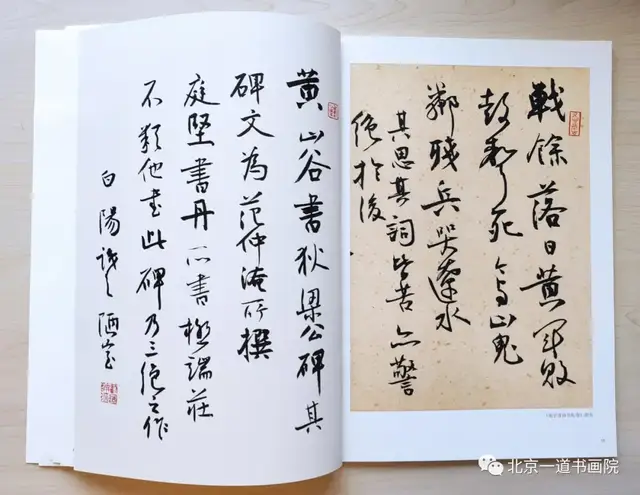 黄山谷書狄梁公碑其
碑文為范仲淹所撰
庭堅書丹所書極端莊
不類他書此碑乃三絕之作
白陽識之陋室
戰餘落日黄軍敗
鼓聲死今与山鬼
鄰殘兵哭遼水
其思其詞皆苦亦警
絕於後
北京一道书画院